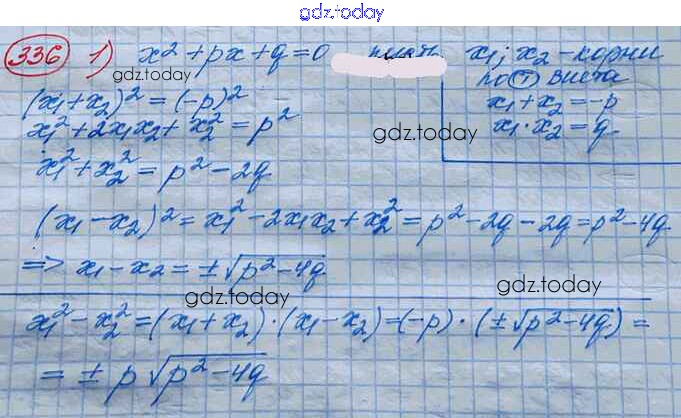 gdz.today
336 1) x² + px + q = 0 пусть x₁; x₂ - корни
gdz.today
по т Виета
x₁ + x₂ = -p
x₁ · x₂ = q
(x₁ + x₂)² = (-p)²
x₁² + 2x₁x₂ + x₂² = p²
gdz.today
x₁² + x₂² = p² - 2q
(x₁ - x₂)² = x₁² - 2x₁x₂ + x₂² = p² - 2q - 2q = p² - 4q
=> x₁ - x₂ = ±√(p² - 4q)
gdz.today
gdz.today
x₁² - x₂² = (x₁ + x₂) · (x₁ - x₂) = (-p) · (±√(p² - 4q)) =
= ± p √(p² - 4q)